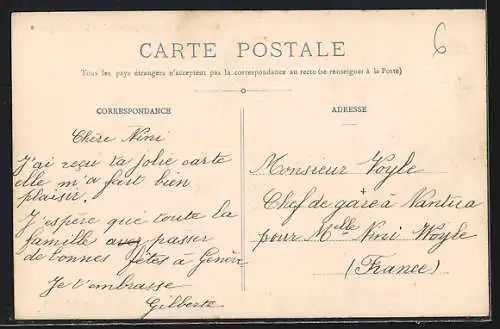 6
CARTE POSTALE
Tous les pays étrangers n'acceptent pas la correspondance au recto (se renseigner à la Poste)
CORRESPONDANCE
Chère Nini
J'ai reçu ta jolie carte
elle m'a fait bien
plaisir.
J'espère que toute la
famille avez passer
de bonnes fêtes à Genève
Je t'embrasse
Gilberte
ADRESSE
Monsieur Voyle
Chef de gare à Nantua
pour Melle Nini Woyle
(France)